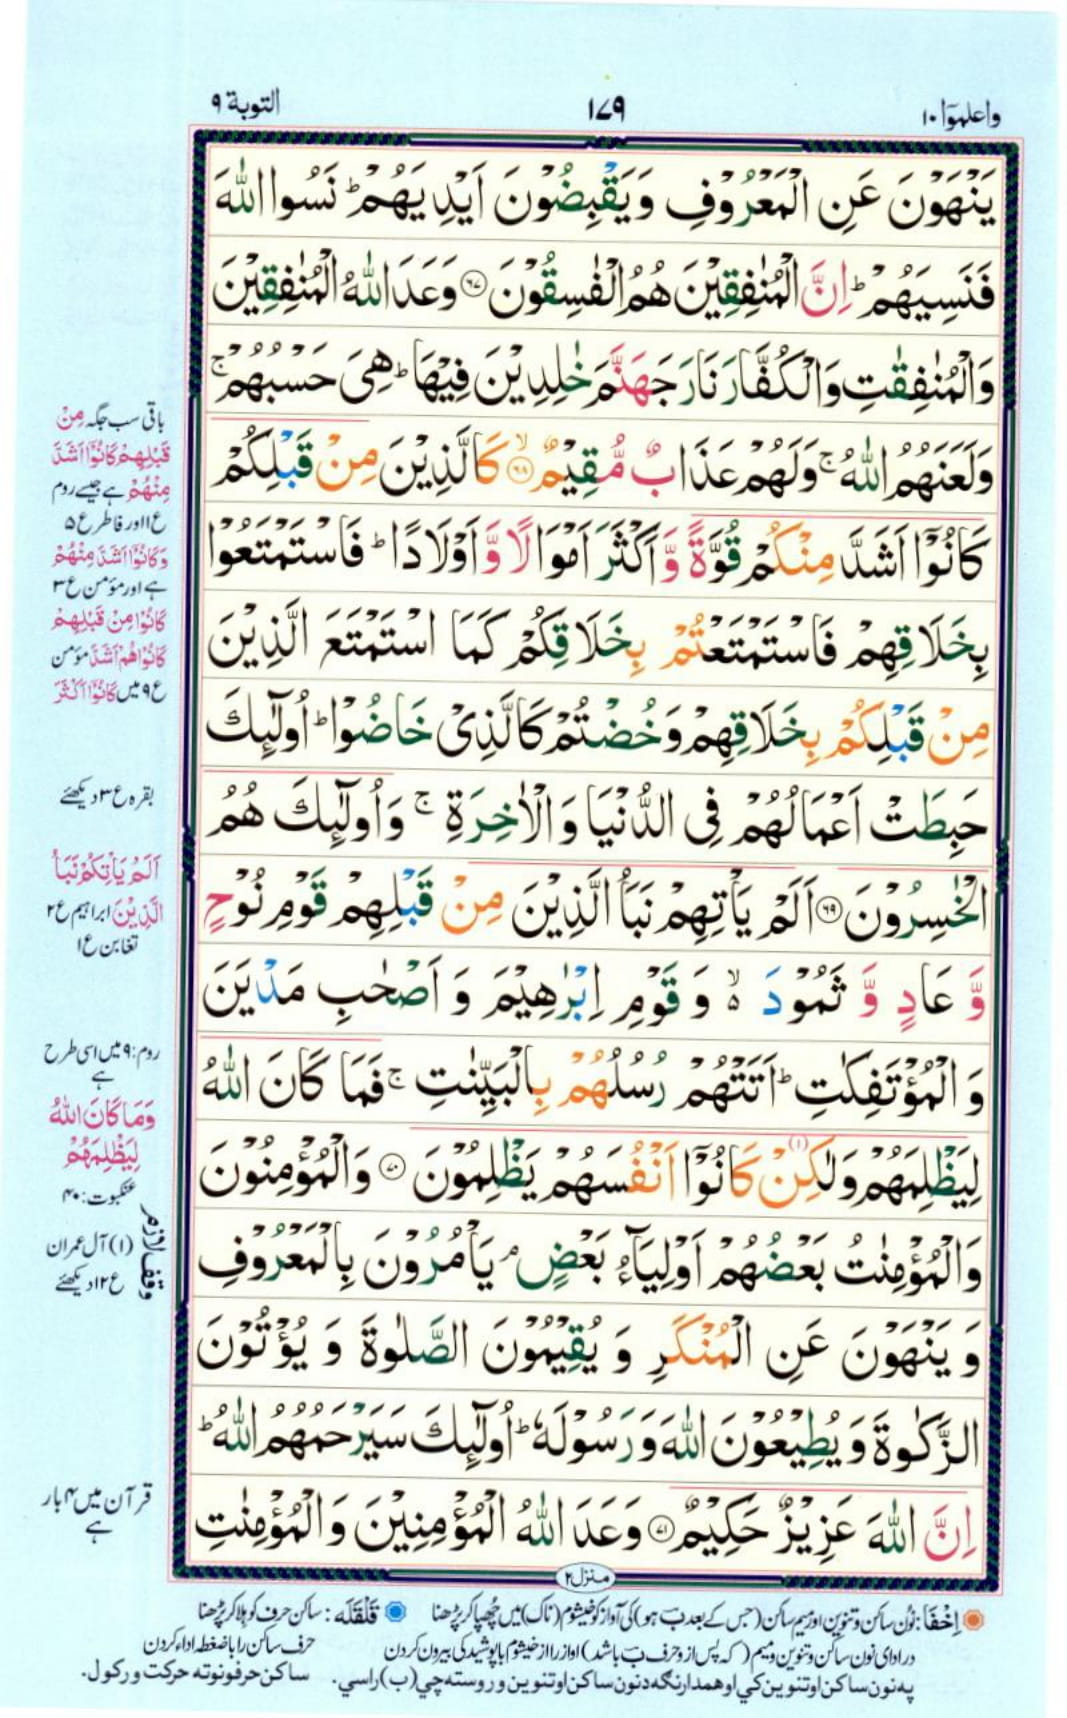 واعلموۤا ١٠
١٧٩
التوبة ٩
يَنْهَوْنَ عَنِ الْمَعْرُوْفِ وَيَقْبِضُوْنَ اَيْدِيَهُمْ ؕ نَسُوا اللّٰهَ
فَنَسِيَهُمْ ؕ اِنَّ الْمُنٰفِقِيْنَ هُمُ الْفٰسِقُوْنَ ۝٦٧ وَعَدَ اللّٰهُ الْمُنٰفِقِيْنَ
وَالْمُنٰفِقٰتِ وَالْكُفَّارَ نَارَ جَهَنَّمَ خٰلِدِيْنَ فِيْهَا ؕ هِیَ حَسْبُهُمْ ۚ
وَلَعَنَهُمُ اللّٰهُ ۚ وَلَهُمْ عَذَابٌ مُّقِيْمٌ ۝٦٨ ۙ كَالَّذِيْنَ مِنْ قَبْلِكُمْ
كَانُوْۤا اَشَدَّ مِنْكُمْ قُوَّةً وَّ اَكْثَرَ اَمْوَالًا وَّ اَوْلَادًا ؕ فَاسْتَمْتَعُوْا
بِخَلَاقِهِمْ فَاسْتَمْتَعْتُمْ بِخَلَاقِكُمْ كَمَا اسْتَمْتَعَ الَّذِيْنَ
مِنْ قَبْلِكُمْ بِخَلَاقِهِمْ وَخُضْتُمْ كَالَّذِیْ خَاضُوْا ؕ اُولٰٓئِكَ
حَبِطَتْ اَعْمَالُهُمْ فِی الدُّنْيَا وَالْاٰخِرَةِ ۚ وَاُولٰٓئِكَ هُمُ
الْخٰسِرُوْنَ ۝٦٩ اَلَمْ يَاْتِهِمْ نَبَاُ الَّذِيْنَ مِنْ قَبْلِهِمْ قَوْمِ نُوْحٍ
وَّ عَادٍ وَّ ثَمُوْدَ ۙ۬ وَ قَوْمِ اِبْرٰهِيْمَ وَ اَصْحٰبِ مَدْيَنَ
وَ الْمُؤْتَفِكٰتِ ؕ اَتَتْهُمْ رُسُلُهُمْ بِالْبَيِّنٰتِ ۚ فَمَا كَانَ اللّٰهُ
لِيَظْلِمَهُمْ وَلٰكِنْ (١) كَانُوْۤا اَنْفُسَهُمْ يَظْلِمُوْنَ ۝٧٠ وَالْمُؤْمِنُوْنَ
وَالْمُؤْمِنٰتُ بَعْضُهُمْ اَوْلِيَآءُ بَعْضٍ ۘ يَاْمُرُوْنَ بِالْمَعْرُوْفِ
وَ يَنْهَوْنَ عَنِ الْمُنْكَرِ وَ يُقِيْمُوْنَ الصَّلٰوةَ وَ يُؤْتُوْنَ
الزَّكٰوةَ وَيُطِيْعُوْنَ اللّٰهَ وَرَسُوْلَهٗ ؕ اُولٰٓئِكَ سَيَرْحَمُهُمُ اللّٰهُ ؕ
اِنَّ اللّٰهَ عَزِيْزٌ حَكِيْمٌ ۝٧١ وَعَدَ اللّٰهُ الْمُؤْمِنِيْنَ وَالْمُؤْمِنٰتِ
منزل ٢
باقی سب جگہ مِنْ
قَبْلِهِمْ كَانُوْۤا اَشَدَّ
مِنْهُمْ ہے جیسے روم
ع١ اور فاطر ع۵
وَكَانُوْۤا اَشَدَّ مِنْهُمْ
ہے اور مؤمن ع٣
كَانُوْا مِنْ قَبْلِهِمْ
كَانُوْا هُمْ اَشَدَّ مؤمن
ع٩ میں كَانُوْۤا اَكْثَرَ
بقره ع٣ دیکھئے
اَلَمْ يَاْتِكُمْ نَبَؤُا
الَّذِيْنَ ابراہیم ع٢
تغابن ع١
روم:٩ میں اسی طرح
ہے
وَمَا كَانَ اللّٰهُ
لِيَظْلِمَهُمْ
عنکبوت:۴٠
وقف لازم
(١) آل عمران
ع١٢ دیکھئے
قرآن میں ۴ بار
ہے
اِخْفَا: نُون ساکن و تنوین اور میم ساکن (جس کے بعد ب ہو) کی آواز کو خیشوم (ناک) میں چُھپا کر پڑھنا
قَلْقَلَه: ساکن حرف کو ہلا کر پڑھنا
در ادای نون ساکن و تنوین و میم (که پس از و حرف ب باشد) آواز را از خیشوم با پوشیدگی بیرون کردن
حرف ساکن را با ضغطه اداء کردن
په نون ساکن او تنوین کي او همدارنګه د نون ساکن او تنوین وروسته چي (ب) راسي.
ساکن حرفونو ته حرکت ورکول.